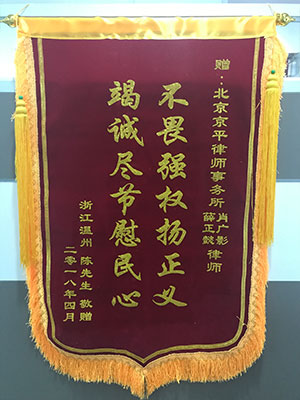 赠：北京京平律师事务所 肖广影 薛正懿 律师
不畏强权扬正义
竭诚尽节慰民心
浙江温州 陈先生 敬赠
二零一八年四月